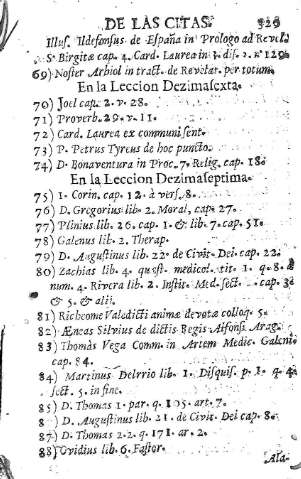 DE LAS CITAS. 329
Illus. Ildefonsus de España in Prologo ad Revel.
Sᵉ Birgitæ cap. 4. Card. Laurea in 3. dis. 2. n. 129.
69) Noster Arbiol in tract. de Revelat. per totum.
En la Leccion Dezimasexta.
70) Joel cap. 2. v. 28.
71) Proverb. 29. v. 11.
72) Card. Laurea ex communi sent.
73) P. Petrus Tyreus de hoc puncto.
74) D. Bonaventura in Proc. 7. Relig. cap. 18.
En la Leccion Dezimaseptima.
75) 1. Corin. cap. 12. à vers. 8.
76) D. Gregorius lib. 2. Moral, cap. 27.
77) Plinius lib. 26. cap. 1. & lib. 7. cap. 51.
78) Galenus lib. 2. Therap.
79) D. Augustinus lib. 22. de Civit. Dei. cap. 22.
80) Zachias lib. 4. quæst. medicol. tit. 1. q. 8.
num. 4. Rivera lib. 2. Instit. Med. sect. cap. 3.
& 5. & alii.
81) Richeome Valedicti animæ devotæ colloq. 5.
82) Æneas Silvius de dictis Regis Alfonsi Arag.
83) Thomas Vega Comm. in Artem Medic. Galeni
cap. 84.
84) Martinus Delrrio lib. 1. Disquis. p. 1. q. 4.
sect. 5. in fine.
85) D. Thomas 1. par. q. 105. art. 7.
86) D. Augustinus lib. 21. de Civit. Dei cap. 8.
87) D. Thomas 2. 2. q. 171. ar. 2.
88) Ovidius lib. 6. Fastor.
Ala-